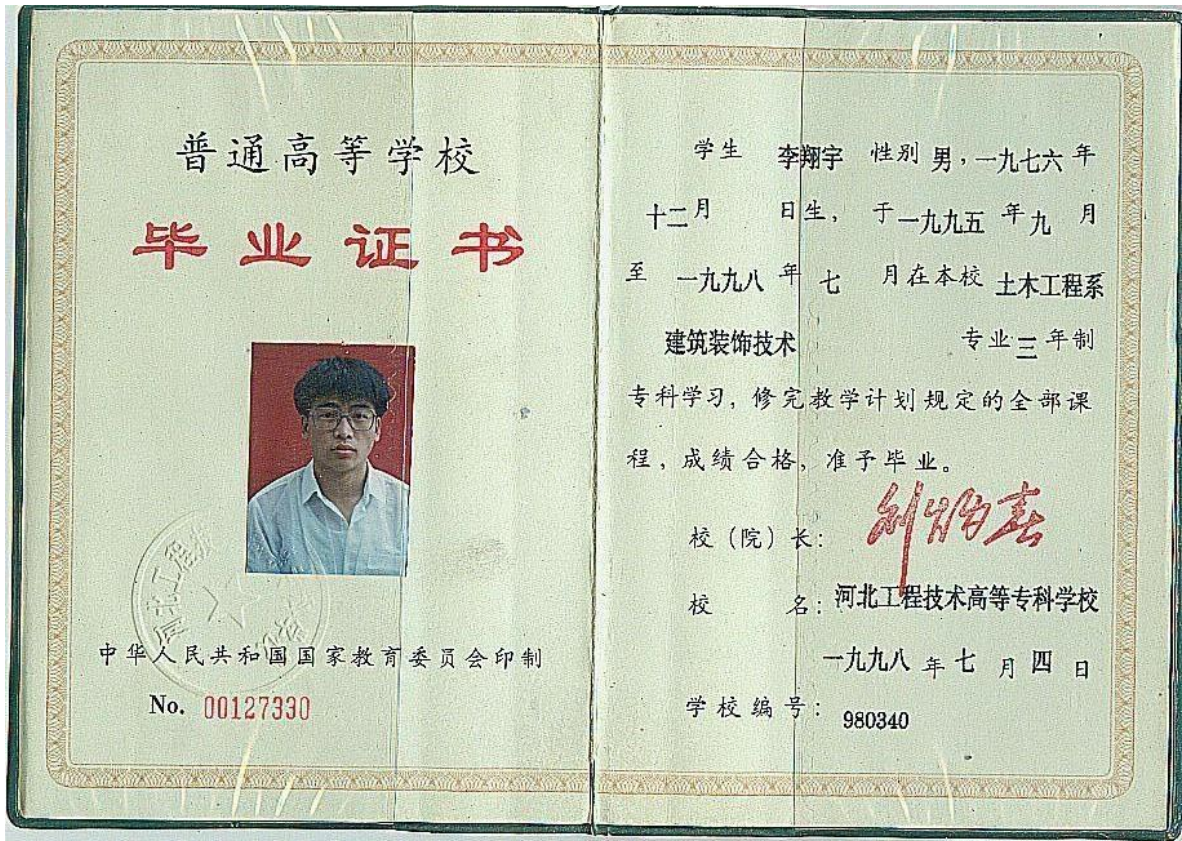 普通高等学校
毕业证书
中华人民共和国国家教育委员会印制
No. 00127330
学生 李翔宇 性别 男,一九七六 年
十二月 日生, 于一九九五 年九 月
至 一九九八 年 七 月在本校 土木工程系
建筑装饰技术 专业 三 年制
专科学习, 修完教学计划规定的全部课
程, 成绩合格, 准予毕业。
校(院)长:
校 名: 河北工程技术高等专科学校
一九九八 年 七 月 四 日
学校编号: 980340